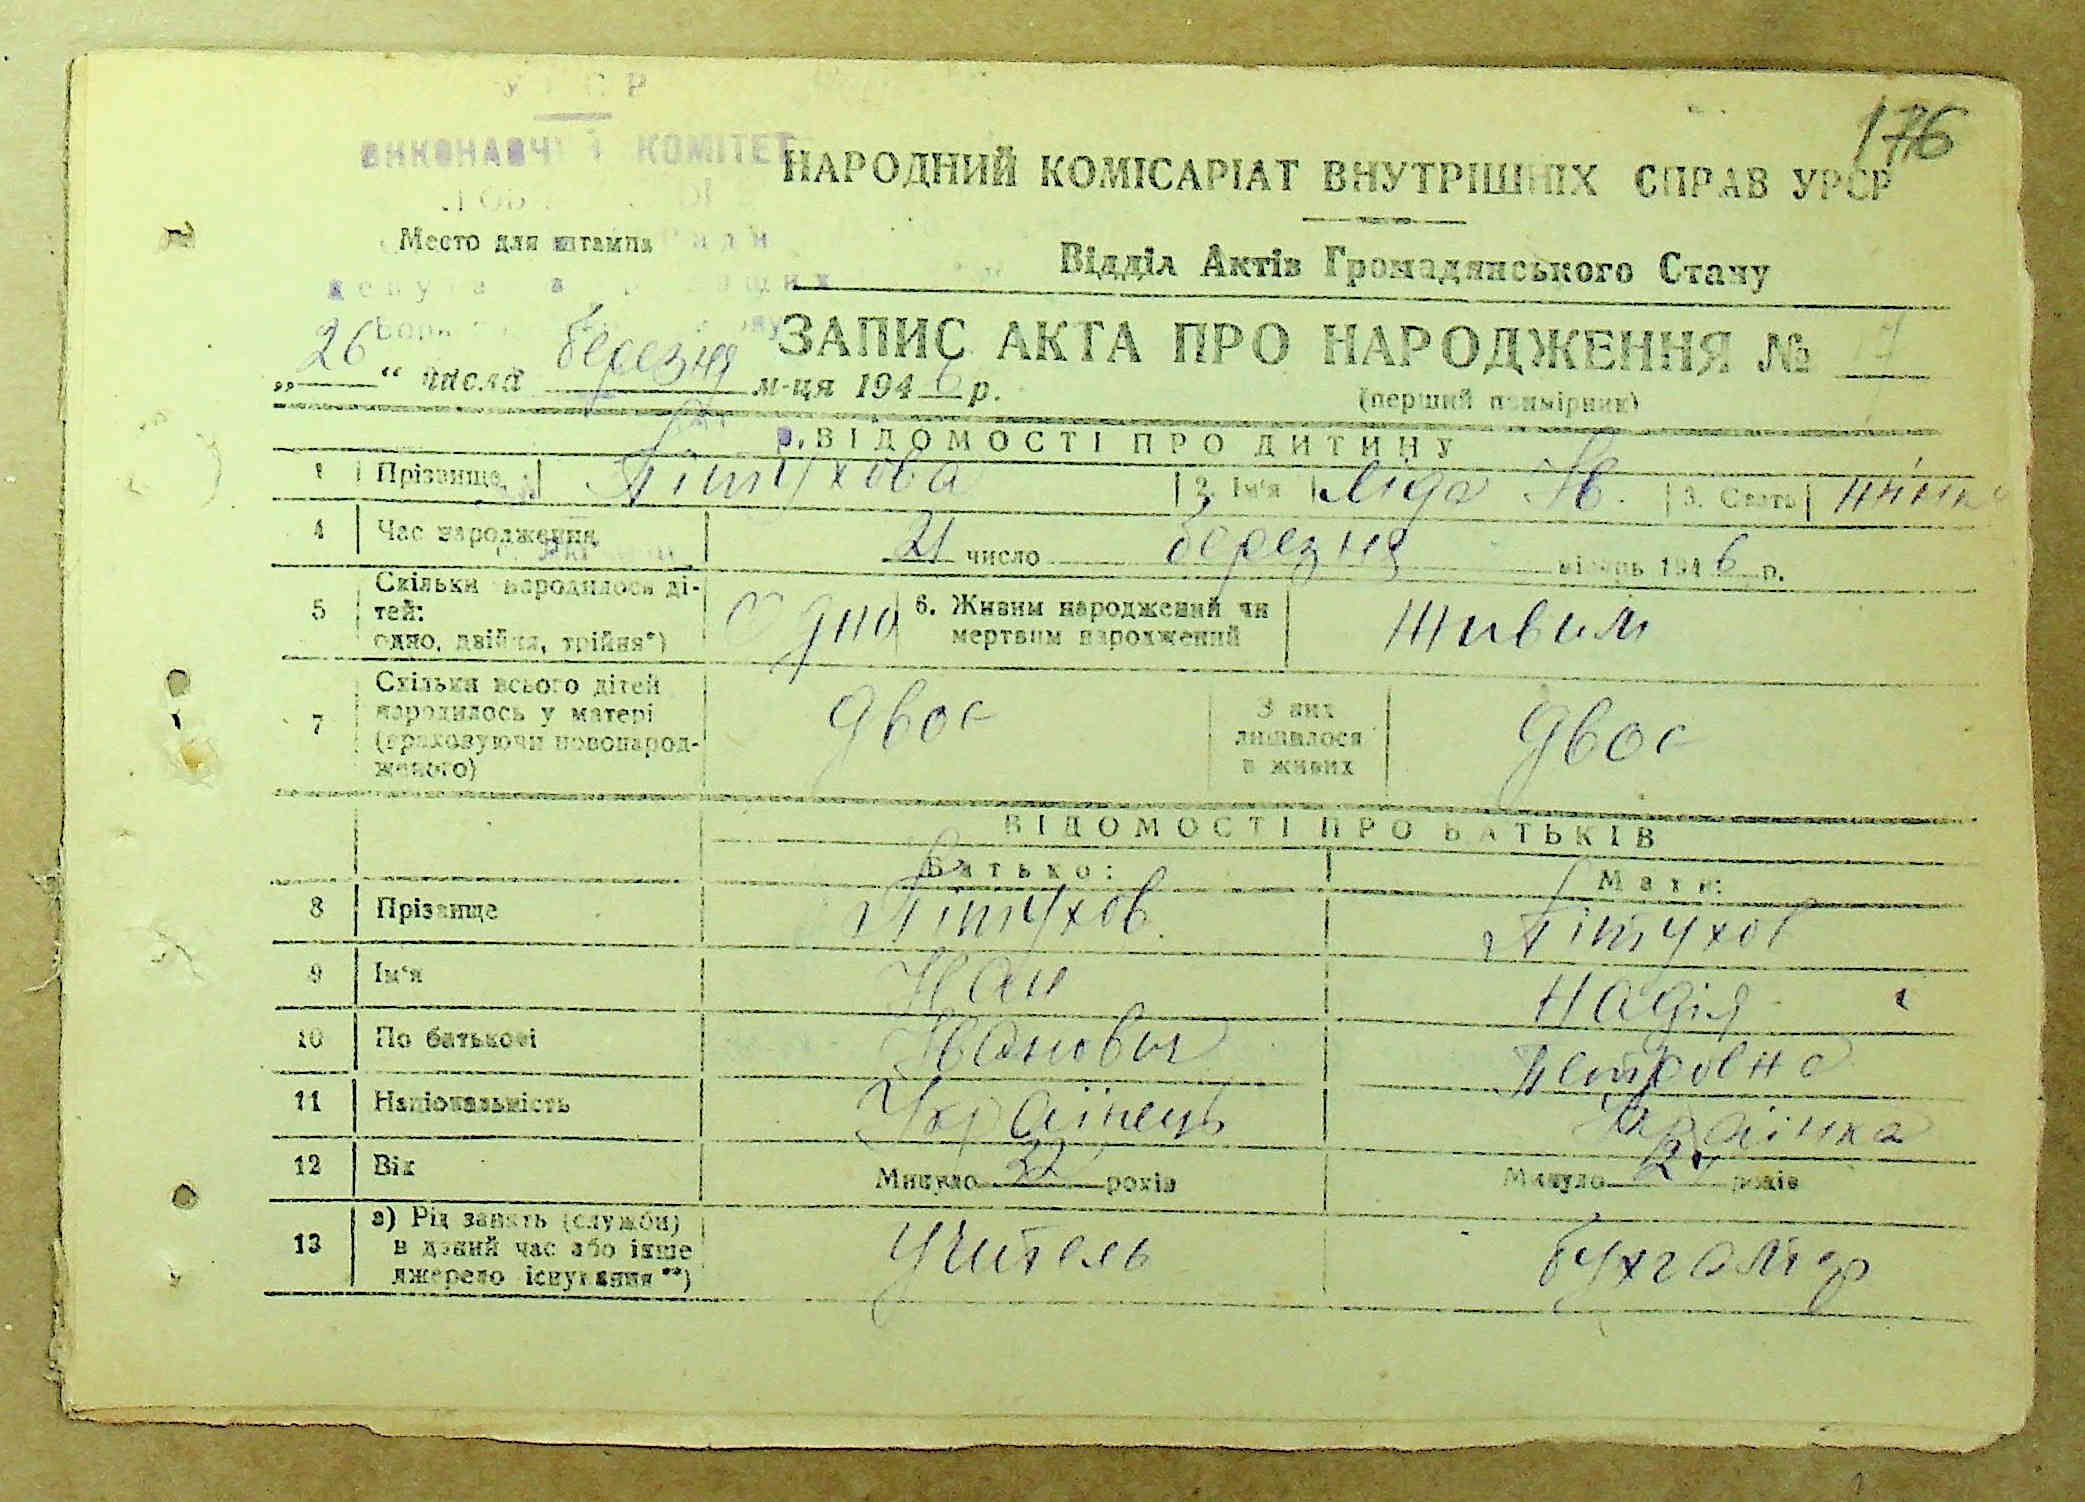 176
ВИКОНАВЧИЙ КОМІТЕТ
НАРОДНИЙ КОМІСАРІАТ ВНУТРІШНІХ СПРАВ УРСР
Место для штампа
Відділ Актів Громадянського Стану
ЗАПИС АКТА ПРО НАРОДЖЕННЯ № 17
„26“ числа березня м-ця 1946 р.
(перший примірник)
ВІДОМОСТІ ПРО ДИТИНУ
1 Прізвище Пітухова 2. Ім'я Ліда 3. Стать
4 Час народження 21 число березня місяць 1946 р.
5 Скільки народилось ді-
тей:
одно, двійня, трійня*) Одно
6. Живим народжений чи
мертвим народжений Живим
7 Скільки всього дітей
народилось у матері
(враховуючи новонарод-
женого) двоє
З них
лишилося
в живих двоє
ВІДОМОСТІ ПРО БАТЬКІВ
Батько: Мати:
8 Прізвище Пітухов Пітухов
9 Ім'я Іван Надія
10 По батькові Іванович Петровна
11 Національність Українець Українка
12 Вік Минуло 32 років Минуло років
13 а) Рід занять (служби)
в даний час або інше
джерело існування**) учитель бухгалтер